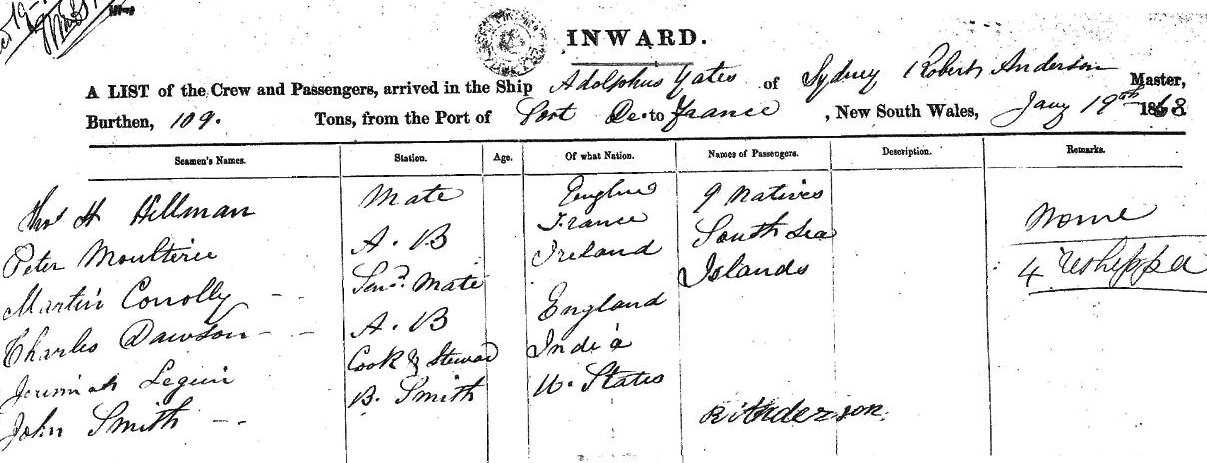 INWARD.
A LIST of the Crew and Passengers, arrived in the Ship Adolphus Yates of Sydney Robert Anderson Master,
Burthen, 109. Tons, from the Port of Port De France, New South Wales, Jany 19th 1863
Seamen's Names. Station. Age. Of what Nation. Names of Passengers. Description. Remarks.
Thos H Hillman Mate 9 Natives None
Peter Moulterie A. B France South Sea
Martin Conolly - - Mate Ireland Islands 4
Charles Dawson - - A. B England
Cook & Steward India
John Smith - - B. Smith U. States
R Anderson.